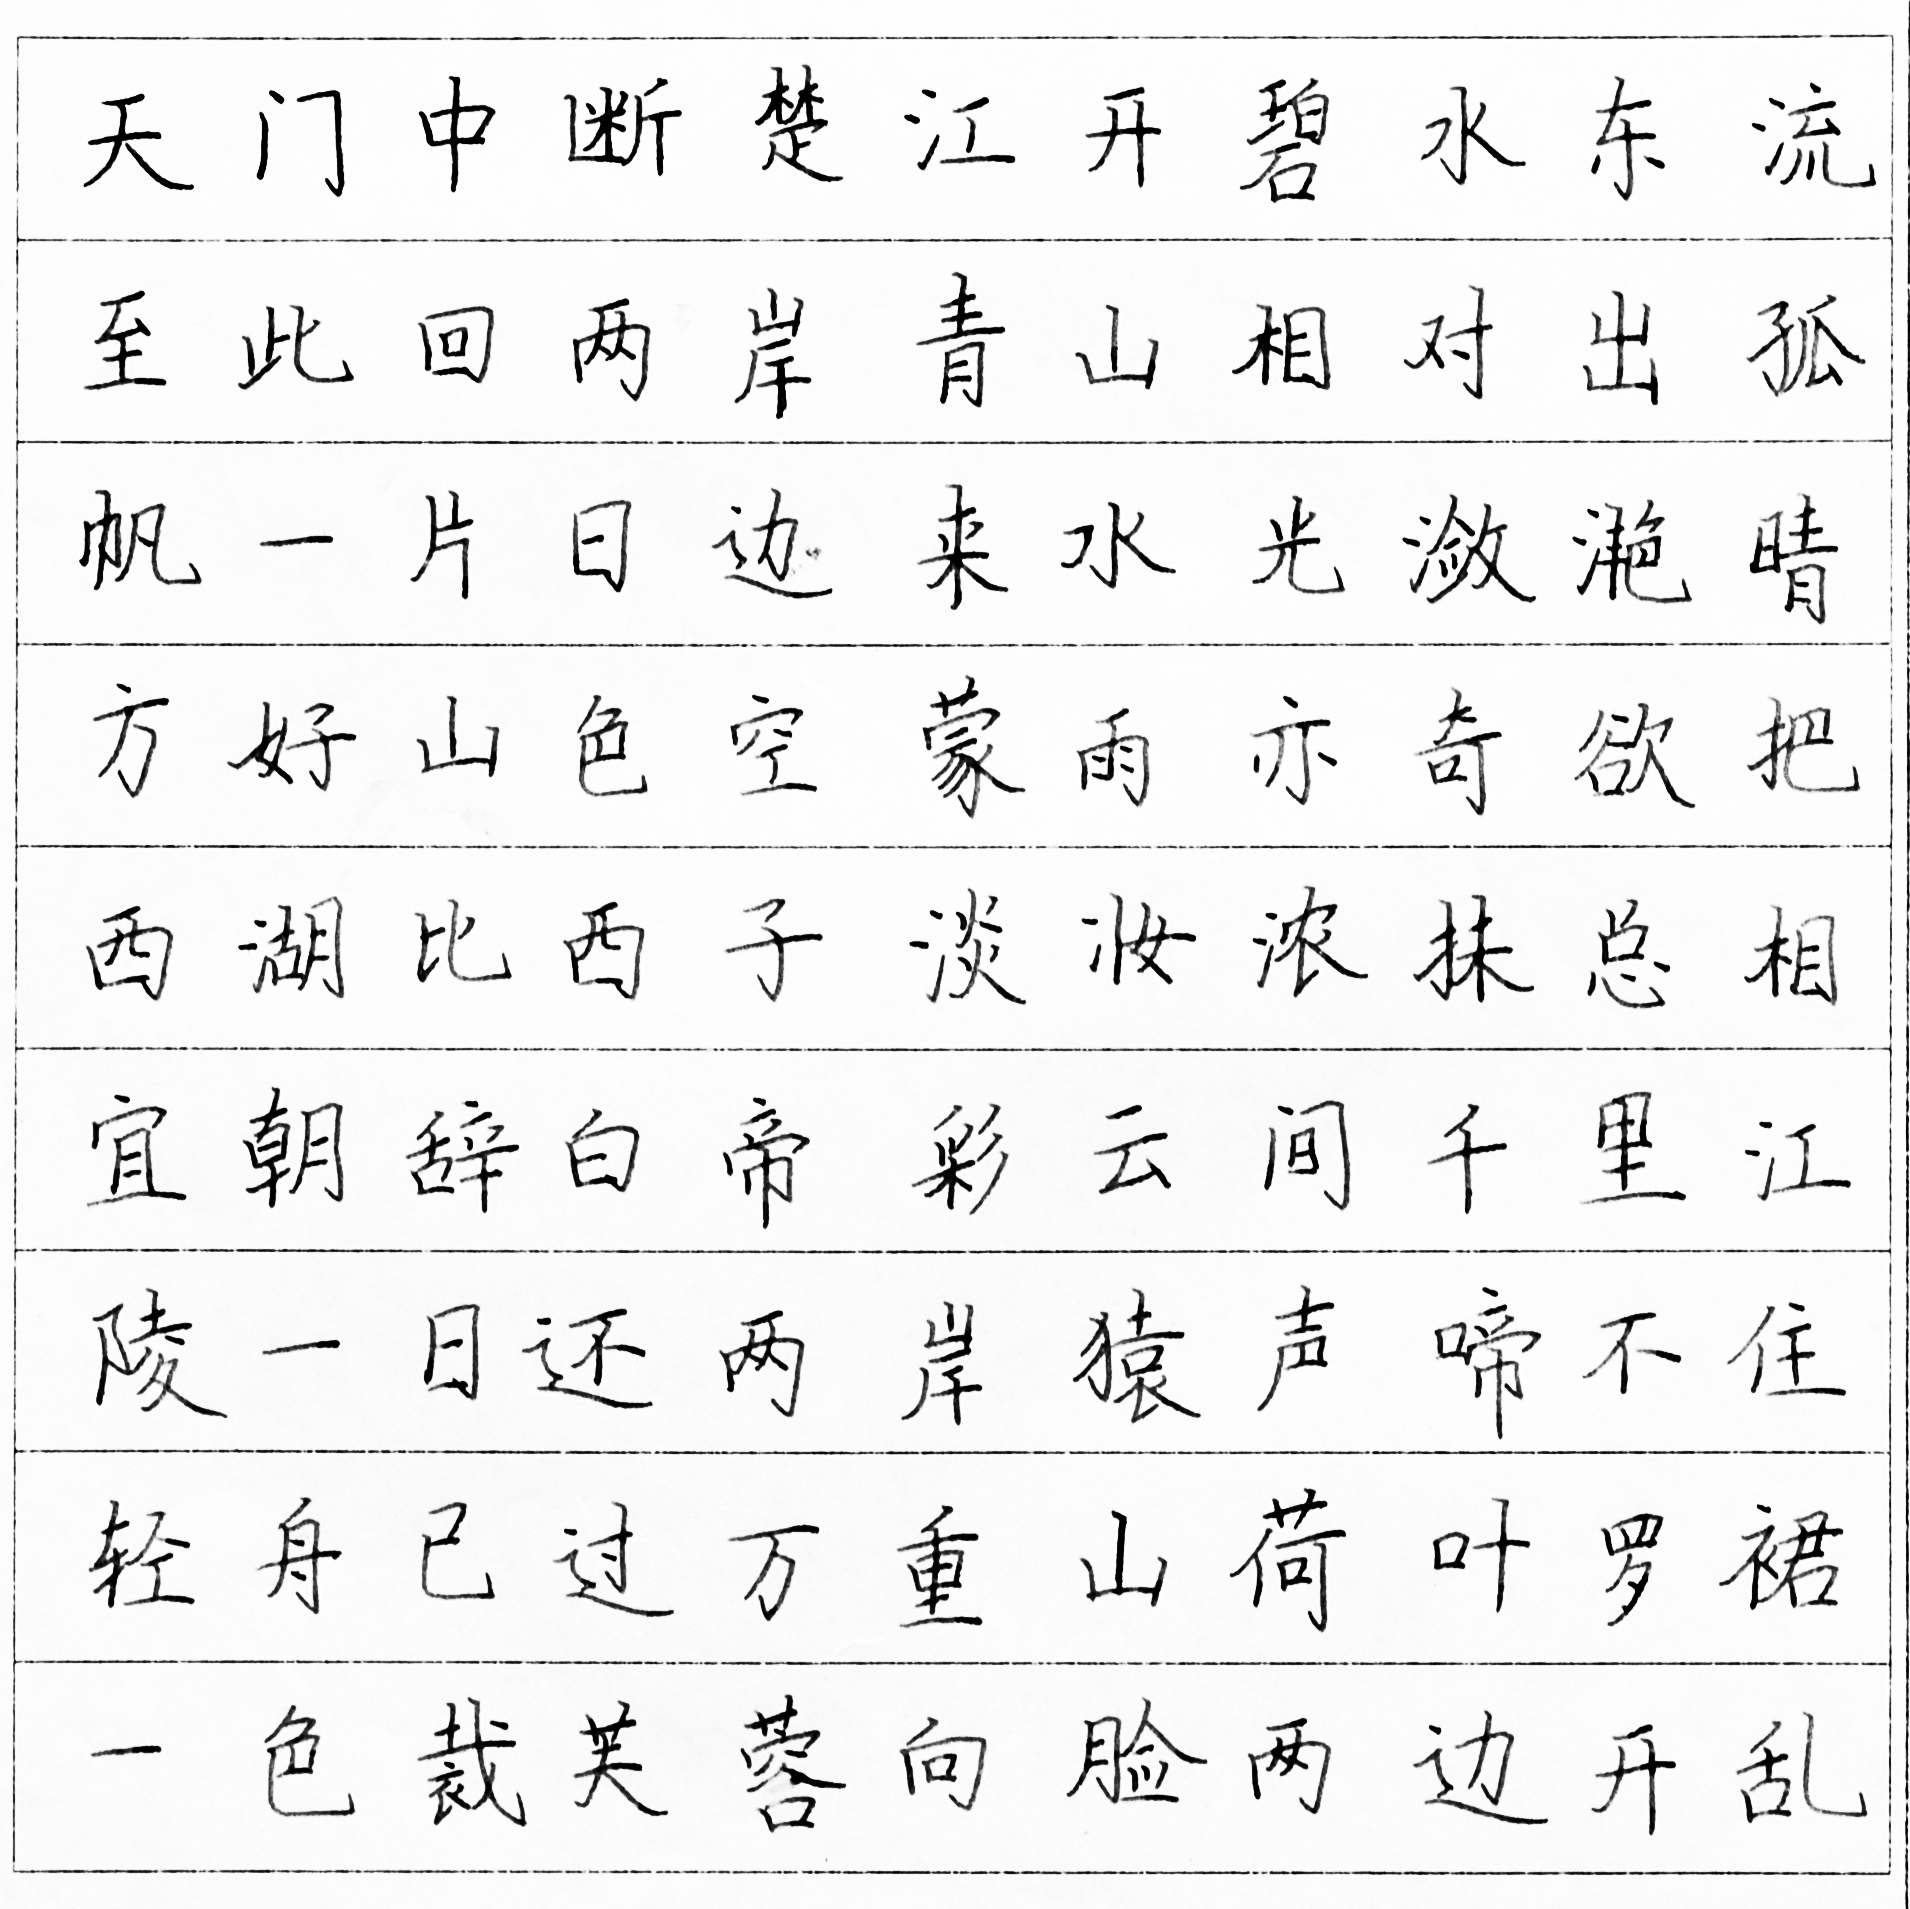 天门中断楚江开碧水东流
至此回两岸青山相对出孤
帆一片日边来水光潋滟晴
方好山色空蒙雨亦奇欲把
西湖比西子淡妆浓抹总相
宜朝辞白帝彩云间千里江
陵一日还两岸猿声啼不住
轻舟已过万重山荷叶罗裙
一色裁芙蓉向脸两边开乱